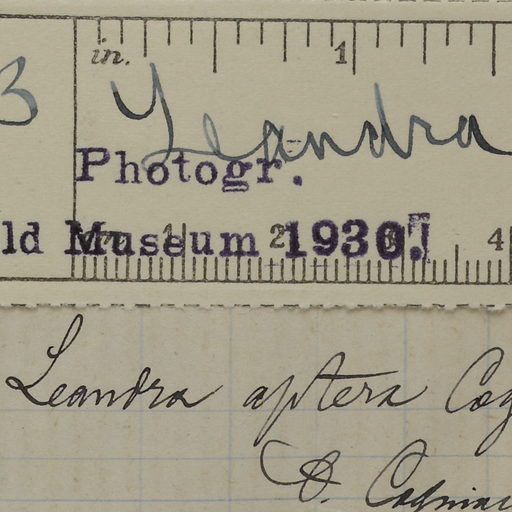 in. 1
3 Leandra
Photogr.
ld Museum 1930.
1 2 3 4
Leandra aptera Cog